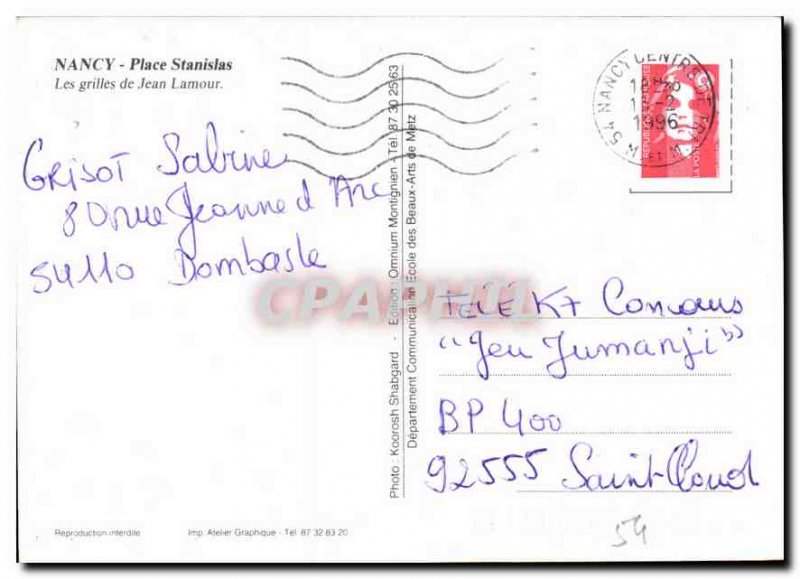 NANCY - Place Stanislas
Les grilles de Jean Lamour.
GRISOT Sabine
80 rue Jeanne d Arc
54110 Dombasle
Photo : Koorosh Shabgard - Edition : Omnium Montignien - Tél : 87 30 25 63
Département Communication Ecole des Beaux-Arts de Metz
54 NANCY CENTRE
18H
1996
REPUBLIQUE FRANÇAISE
LA POSTE
CPAPHIL
TELE K7 Concours
"Jeu Jumanji"
BP 400
92555 Saint-Cloud
Reproduction interdite
Imp. Atelier Graphique - Tél. 87 32 83 20
54